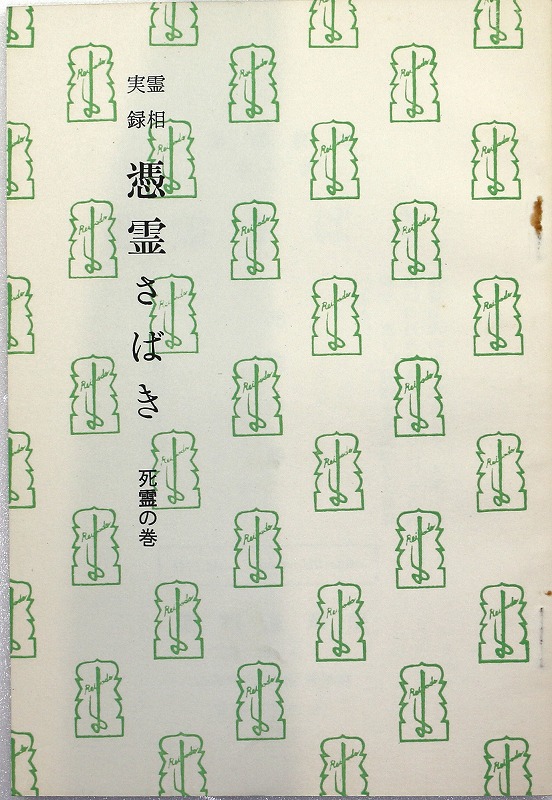 霊相
実録
憑霊さばき
死霊の巻